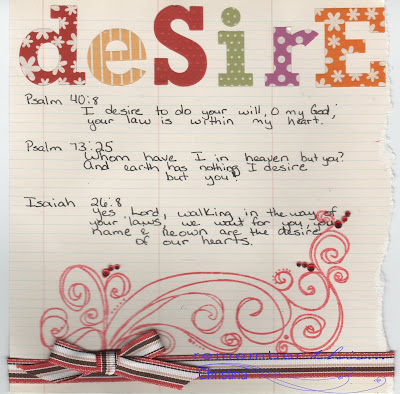 desirE
Psalm 40:8
I desire to do your will, O my God;
your law is within my heart.
Psalm 73:25
Whom have I in heaven but you?
And earth has nothing I desire
but you!
Isaiah 26:8
Yes Lord, walking in the way of
your laws, we wait for you, your
name & renown are the desire
of our hearts.
Christina